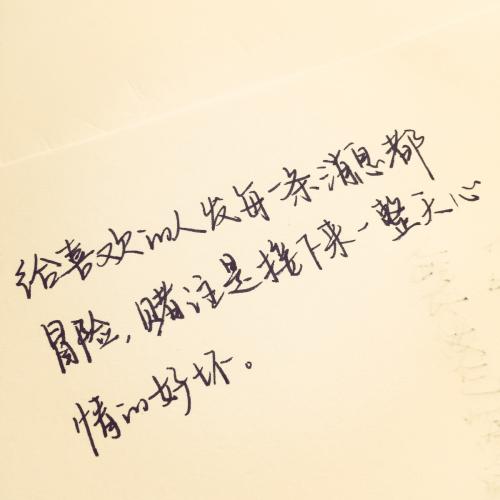 给喜欢的人发每一条消息都
冒险，赌注是接下来一整天心
情的好坏。